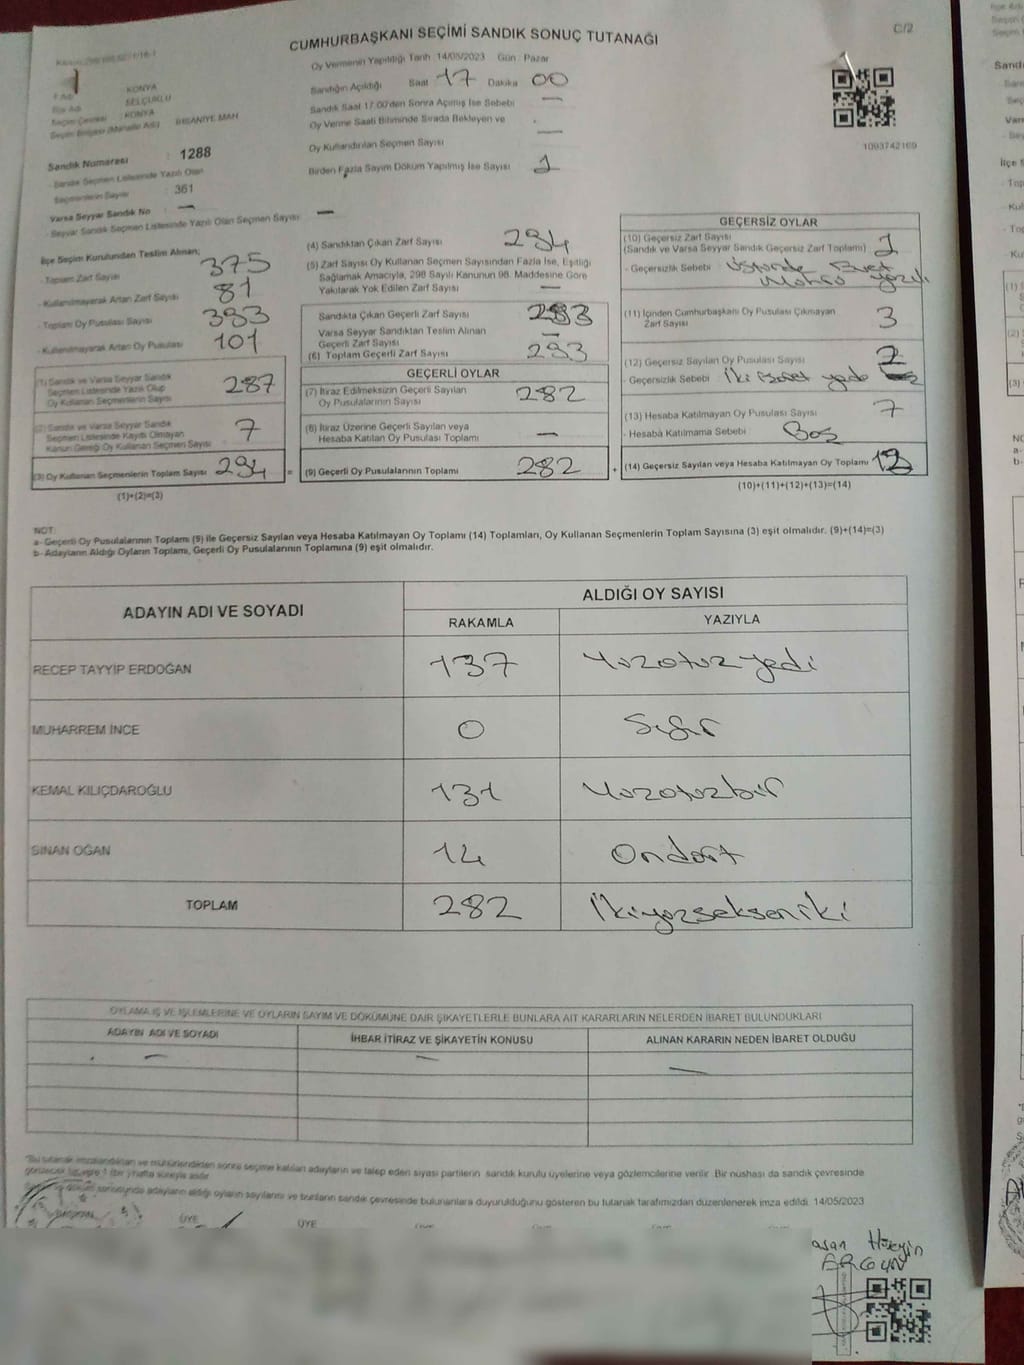 CUMHURBAŞKANI SEÇİMİ SANDIK SONUÇ TUTANAĞI
C/2
Oy Vermenin Yapıldığı Tarih 14/05/2023 Gün : Pazar
Sandığın Açıldığı Saat 17 Dakika 00
Sandık Saat 17.00'den Sonra Açılmış İse Sebebi —
Oy Verme Saati Bitiminde Sırada Bekleyen ve
Oy Kullandırılan Seçmen Sayısı —
Birden Fazla Sayım Döküm Yapılmış İse Sayısı 1
1093742169
İl Adı KONYA
İlçe Adı SELÇUKLU
Seçim Çevresi : KONYA
Seçim Bölgesi (Mahalle Adı) : İHSANİYE MAH
Sandık Numarası : 1288
- Sandık Seçmen Listesinde Yazılı Olan
Seçmenlerin Sayısı : 361
Varsa Seyyar Sandık No —
- Seyyar Sandık Seçmen Listesinde Yazılı Olan Seçmen Sayısı —
İlçe Seçim Kurulundan Teslim Alınan;
- Toplam Zarf Sayısı 375
- Kullanılmayarak Artan Zarf Sayısı 81
- Toplam Oy Pusulası Sayısı 383
- Kullanılmayarak Artan Oy Pusulası 101
(1) Sandık ve Varsa Seyyar Sandık
Seçmen Listesinde Yazılı Olup
Oy Kullanan Seçmenlerin Sayısı 287
(2) Sandık ve Varsa Seyyar Sandık
Seçmen Listesinde Kayıtlı Olmayan
Kanun Gereği Oy Kullanan Seçmen Sayısı 7
(3) Oy Kullanan Seçmenlerin Toplam Sayısı 294
(1)+(2)=(3)
(4) Sandıktan Çıkan Zarf Sayısı 294
(5) Zarf Sayısı Oy Kullanan Seçmen Sayısından Fazla İse, Eşitliği
Sağlamak Amacıyla, 298 Sayılı Kanunun 98. Maddesine Göre
Yakılarak Yok Edilen Zarf Sayısı —
Sandıkta Çıkan Geçerli Zarf Sayısı 293
Varsa Seyyar Sandıktan Teslim Alınan
Geçerli Zarf Sayısı —
(6) Toplam Geçerli Zarf Sayısı 293
GEÇERLİ OYLAR
(7) İtiraz Edilmeksizin Geçerli Sayılan
Oy Pusulalarının Sayısı 282
(8) İtiraz Üzerine Geçerli Sayılan veya
Hesaba Katılan Oy Pusulası Toplamı —
= (9) Geçerli Oy Pusulalarının Toplamı 282
GEÇERSİZ OYLAR
(10) Geçersiz Zarf Sayısı
(Sandık ve Varsa Seyyar Sandık Geçersiz Zarf Toplamı) 1
- Geçersizlik Sebebi Üstünde Evet yazılı
(11) İçinden Cumhurbaşkanı Oy Pusulası Çıkmayan
Zarf Sayısı 3
(12) Geçersiz Sayılan Oy Pusulası Sayısı
- Geçersizlik Sebebi İki
(13) Hesaba Katılmayan Oy Pusulası Sayısı 7
- Hesaba Katılmama Sebebi Boş
+ (14) Geçersiz Sayılan veya Hesaba Katılmayan Oy Toplamı 12
(10)+(11)+(12)+(13)=(14)
NOT:
a- Geçerli Oy Pusulalarının Toplamı (9) ile Geçersiz Sayılan veya Hesaba Katılmayan Oy Toplamı (14) Toplamları, Oy Kullanan Seçmenlerin Toplam Sayısına (3) eşit olmalıdır. (9)+(14)=(3)
b- Adayların Aldığı Oyların Toplamı, Geçerli Oy Pusulalarının Toplamına (9) eşit olmalıdır.
ADAYIN ADI VE SOYADI
ALDIĞI OY SAYISI
RAKAMLA YAZIYLA
RECEP TAYYİP ERDOĞAN 137 Yüzotuzyedi
MUHARREM İNCE 0 Sıfır
KEMAL KILIÇDAROĞLU 131 Yüzotuzbir
SİNAN OĞAN 14 Ondört
TOPLAM 282 İkiyüzsekseniki
OYLAMA İŞ VE İŞLEMLERİNE VE OYLARIN SAYIM VE DÖKÜMÜNE DAİR ŞİKAYETLERLE BUNLARA AİT KARARLARIN NELERDEN İBARET BULUNDUKLARI
ADAYIN ADI VE SOYADI İHBAR İTİRAZ VE ŞİKAYETİN KONUSU ALINAN KARARIN NEDEN İBARET OLDUĞU
— — —
*Bu tutanak imzalandıktan ve mühürlendikten sonra seçime katılan adayların ve talep eden siyasi partilerin sandık kurulu üyelerine veya gözlemcilerine verilir. Bir nüshası da sandık çevresinde
görülecek bir yere 1 (bir) hafta süreyle asılır.
döküm sonucunda adayların aldığı oyların sayılarını ve bunların sandık çevresinde bulunanlara duyurulduğunu gösteren bu tutanak tarafımızdan düzenlenerek imza edildi. 14/05/2023
BAŞKAN ÜYE ÜYE
Hüseyin
ERGÜN